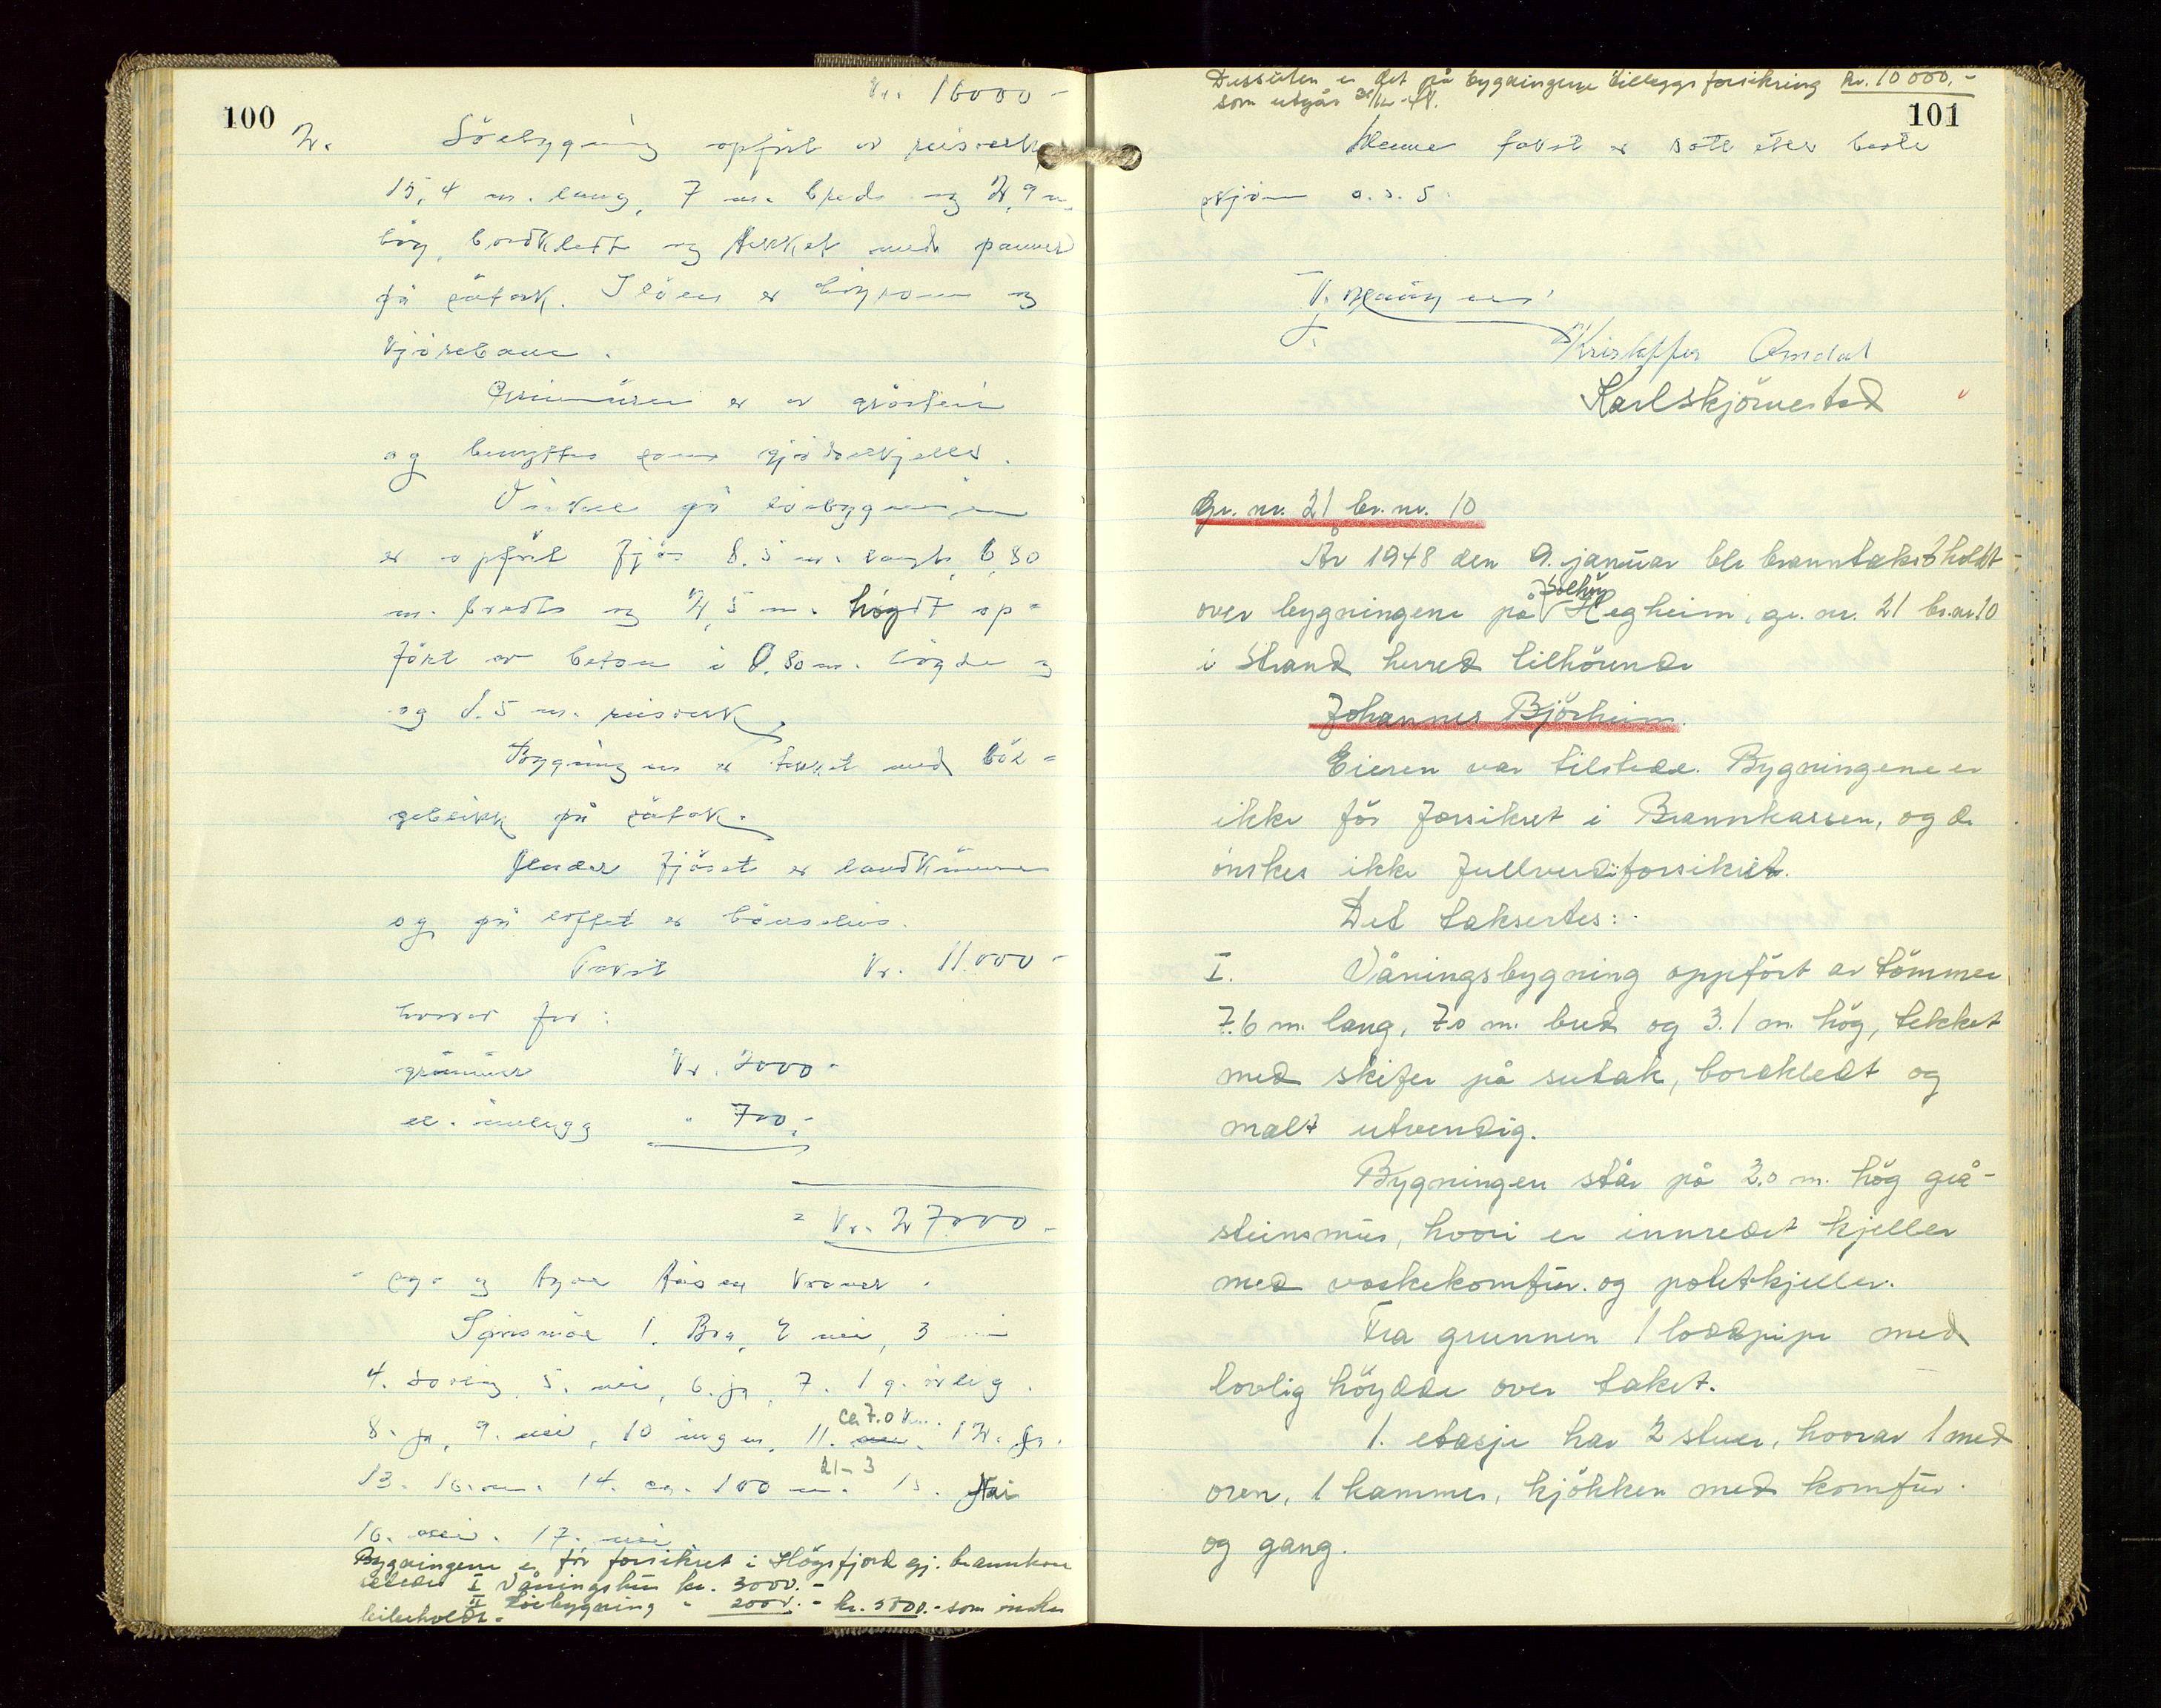 Kr. 16000 -
100
2. Löebygning opfört av reisverk,
15,4 m. lang, 7 m. bred og 2,9 m.
höy, bordkledt og tekket med panner
på sutak. I löen er höyrom og
kjörebane.
Grunnmuren er av gråstein
og benyttes som gjödselkjeller.
Vinkel på löebygningen
er opfört fjös 8.5 m. langt, 6,80
m. bredt og 2,5 m. högdt op-
fört av beton i 0.80 m. höyde og
og 1.5 m. reisverk,
Bygningen er tekket med böl-
geblikk på sutak.
Under fjöset er landkummer
og på loftet er hönsehus.
Takst Kr. 11.000 -
hvorav for:
grunnmur Kr. 2000 -
el. innlegg " 700.-
= Kr. 27000 -
Spörsmål 1. Bra, 2 nei, 3 nei
4. 5. nei, 6. ja, 7. 1 g. årlig.
ca 7.0 km.
8. ja, 9. nei, 10 ingen, 11. nei. 12. ja.
21-3
13. 16. m. 14. ca. 100 m. 15. Nei
16. nei. 17. nei
Bygningene er för forsikret i Högsfjord gj. brannkasse
således I Våningshus kr. 3000.-
II Löebygning " 2000.- kr. 5000.- som önskes
bibeholdt.-
Dessuten er det på bygningene tilleggsforsikring kr. 10 000.-
som utgår 31/12-48.
101
Denne takst er satt etter beste
skjönn o.s.s.
Kristoffer Omdal
Karl Skjörvestad
Gr. nr. 21 br. nr. 10
År 1948 den 9. januar ble branntakst holdt
Solhöy
over bygningene på V Hegheim, gr. nr. 21 br.nr. 10
i Strand herred tilhörende
Johannes Björheim.
Eieren var tilstede. Bygningene er
ikke för forsikret i Brannkassen, og de
önskes ikke fullverdiforsikret.
Det taksertes:
I. Våningsbygning oppfört av tömmer
7.6 m. lang, 7.0 m. bred og 3.1 m. hög, tekket
med skifer på sutak, bordkledt og
malt utvendig.
Bygningen står på 2.0 m. hög grå-
steinsmur, hvori er innredet kjeller
med vaskekomfur. og potetkjeller.
Fra grunnen 1 loddpipe med
lovlig höydde over taket.
1. etasje har 2 stuer, hvorav 1 med
oven, 1 kammer, kjökken med komfur.
og gang.